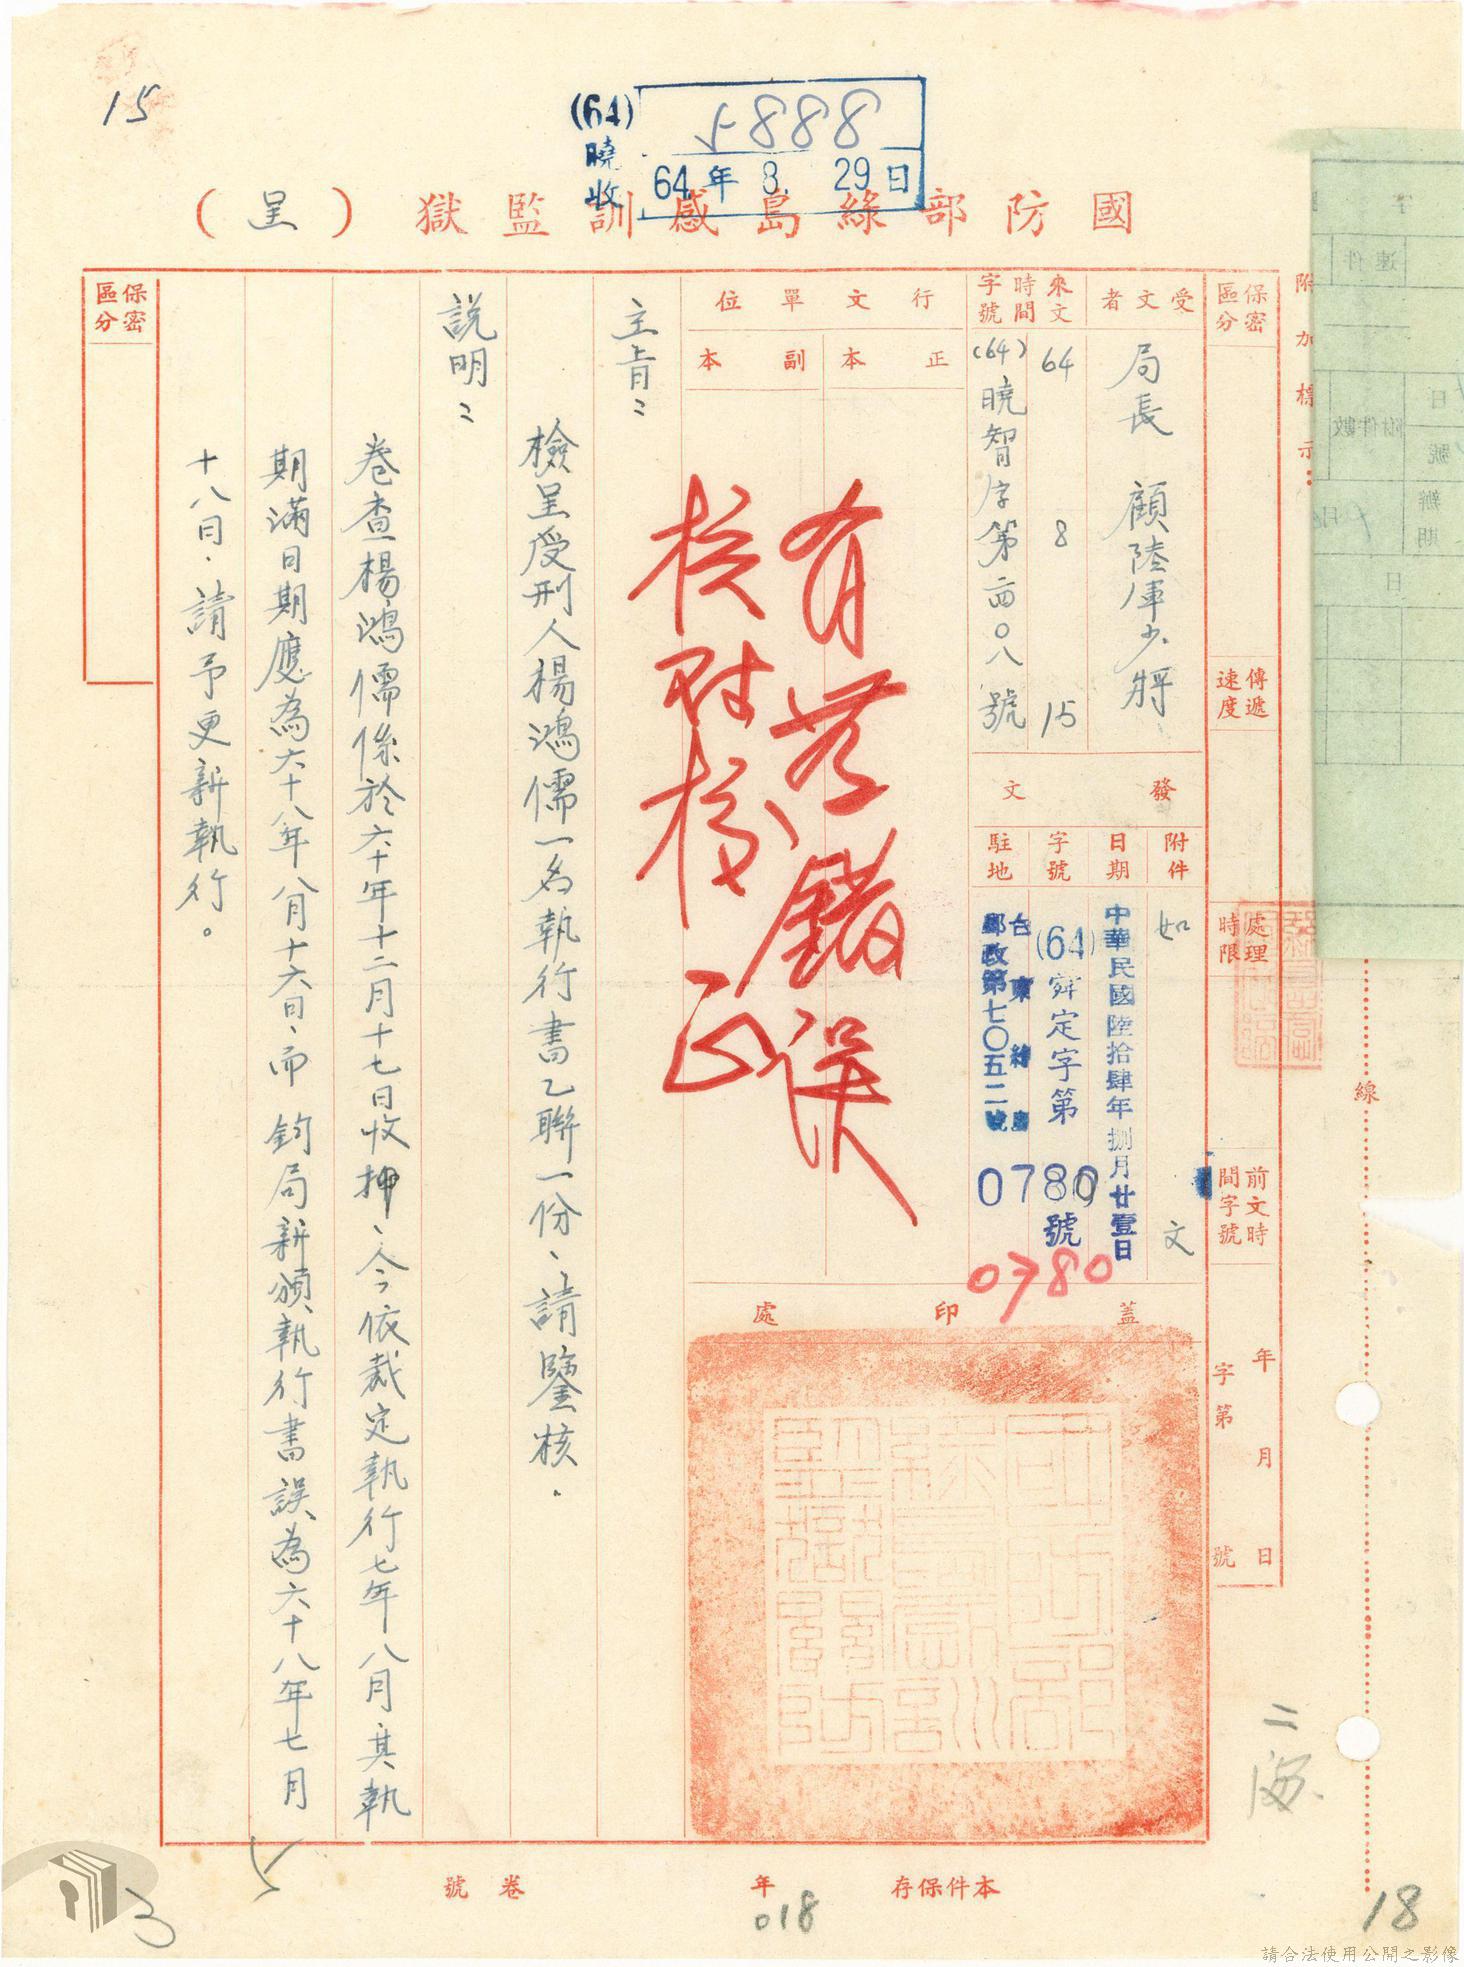 15
(64)
曉收
5888
64年8.29日
國防部綠島感訓監獄（呈）
附加標示：
保密區分
傳遞速度
處理時限
前文時間字號
年月日
字第號
受文者
局長 顧陸軍少將
來文時間字號
64 8 15
(64)曉智字第 〇八號
發文
附件
如文
日期
中華民國陸拾肆年捌月廿壹日
字號
(64)舜定字第
0780號
0780
駐地
台東綠島
郵政第七〇五二號
行文單位
正本
副本
有無錯誤
核對
正
蓋印處
主旨：
檢呈受刑人楊鴻儒一名執行書乙聯一份、請鑒核.
說明：
卷查楊鴻儒係於六十年十二月十七日收押、今依裁定執行七年八月其執
期滿日期應為六十八年八月十六日、而 鈞局新頒執行書誤為六十八年七月
十八日.請予更新執行。
保密區分
線
二
本件保存 年 卷 號
018
18
速件
附件數
日
號
辦
期
月
日
請合法使用公開之影像